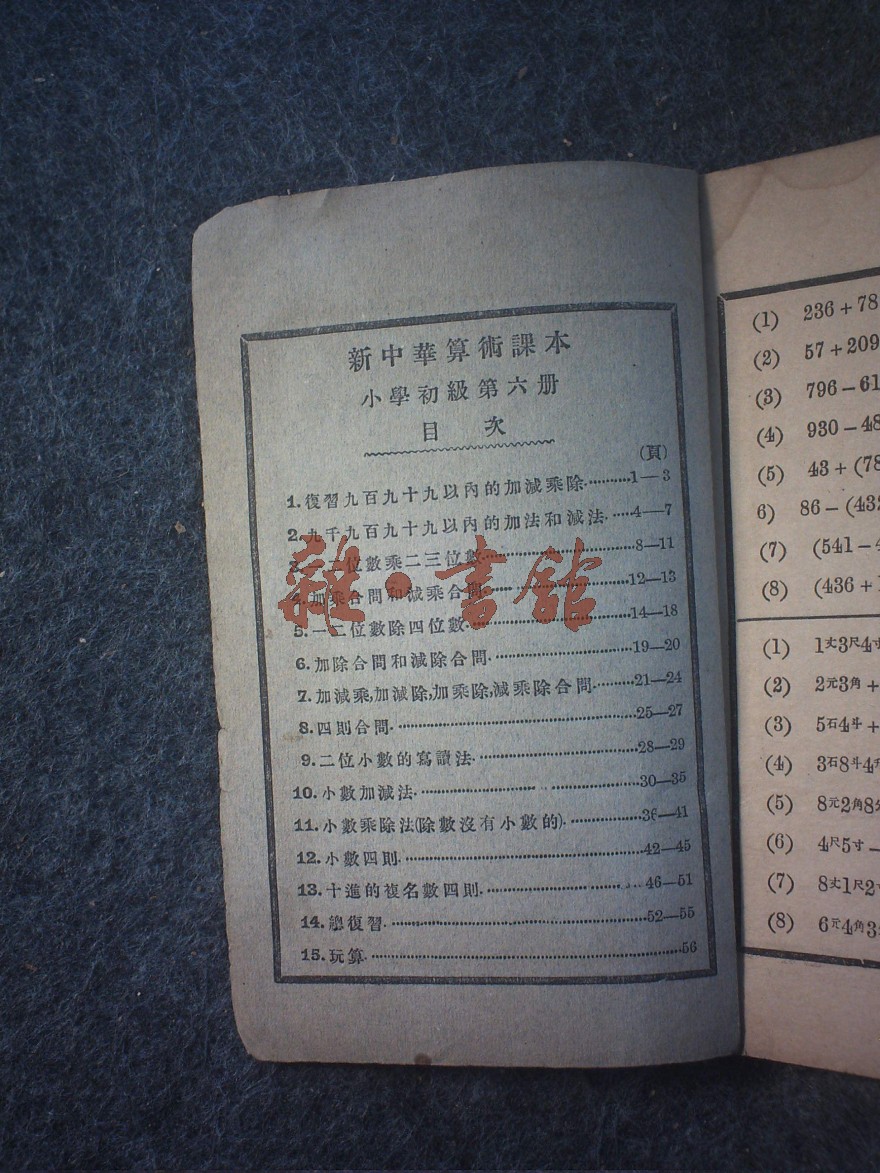 新中華算術課本
小學初級第六册
目 次
(頁)
1.復習九百九十九以內的加減乘除··········1—3
2.九千九百九十九以內的加法和減法·····4—7
位數乘二三位數··········8—11
加乘合問和減乘合問··········12—13
5.一二位數除四位數··········14—18
6.加除合問和減除合問··········19—20
7.加減乘,加減除,加乘除,減乘除合問·········21—24
8.四則合問··········25—27
9.二位小數的寫讀法··········28—29
10.小數加減法··········30—35
11.小數乘除法(除數沒有小數的)··········36—41
12.小數四則··········42—45
13.十進的複名數四則··········46—51
14.總復習··········52—55
15.玩算··········56
雜·書館
(1) 236+78
(2) 57+209
(3) 796-61
(4) 930-48
(5) 43+(78
6) 86-(432
(7) (541-4
(8) (436+
(1) 1丈3尺4寸
(2) 2元3角+
(3) 5石4斗+
(4) 3石8斗4升
(5) 8元2角8分
(6) 4尺5寸-
(7) 8丈1尺2寸
(8) 6元4角3